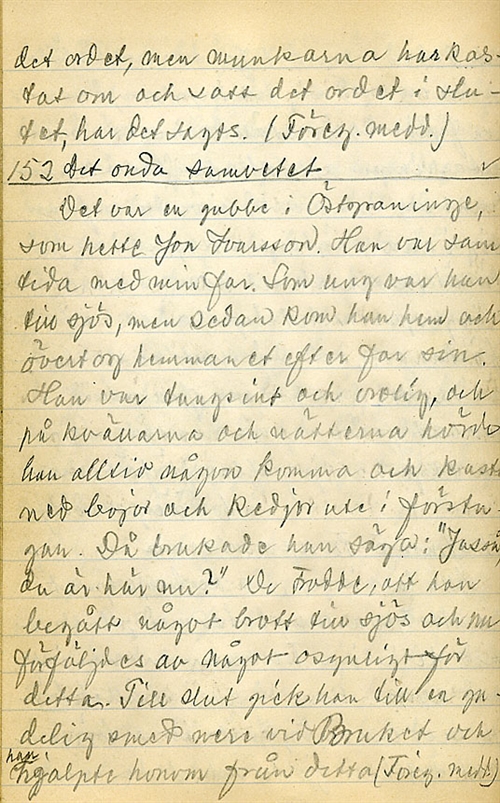 det ordet, men munkarna har kas-
tat om och satt det ordet i slu-
tet, har det sagts. (Föreg. medd.)
152 Det onda samvetet
Det var en gubbe i Östgraninge,
som hette Jon Ivarsson. Han var sam
tida med min far. Som ung var han
till sjös, men sedan kom han hem och
övertog hemmanet efter far sin.
Han var tungsint och orolig, och
på kvällarna och nätterna hörde
han alltid någon komma och kasta
ned bojor och kedjor ute i förstu-
gan. Då brukade han säga: "Jasså,
du är här nu?" De trodde, att han
begått något brott till sjös och nu
förföljdes av något osynligt för
detta. Till slut gick han till en gu-
delig smed nere vid Bruket och
han hjälpte honom från detta (Föreg. medd.)